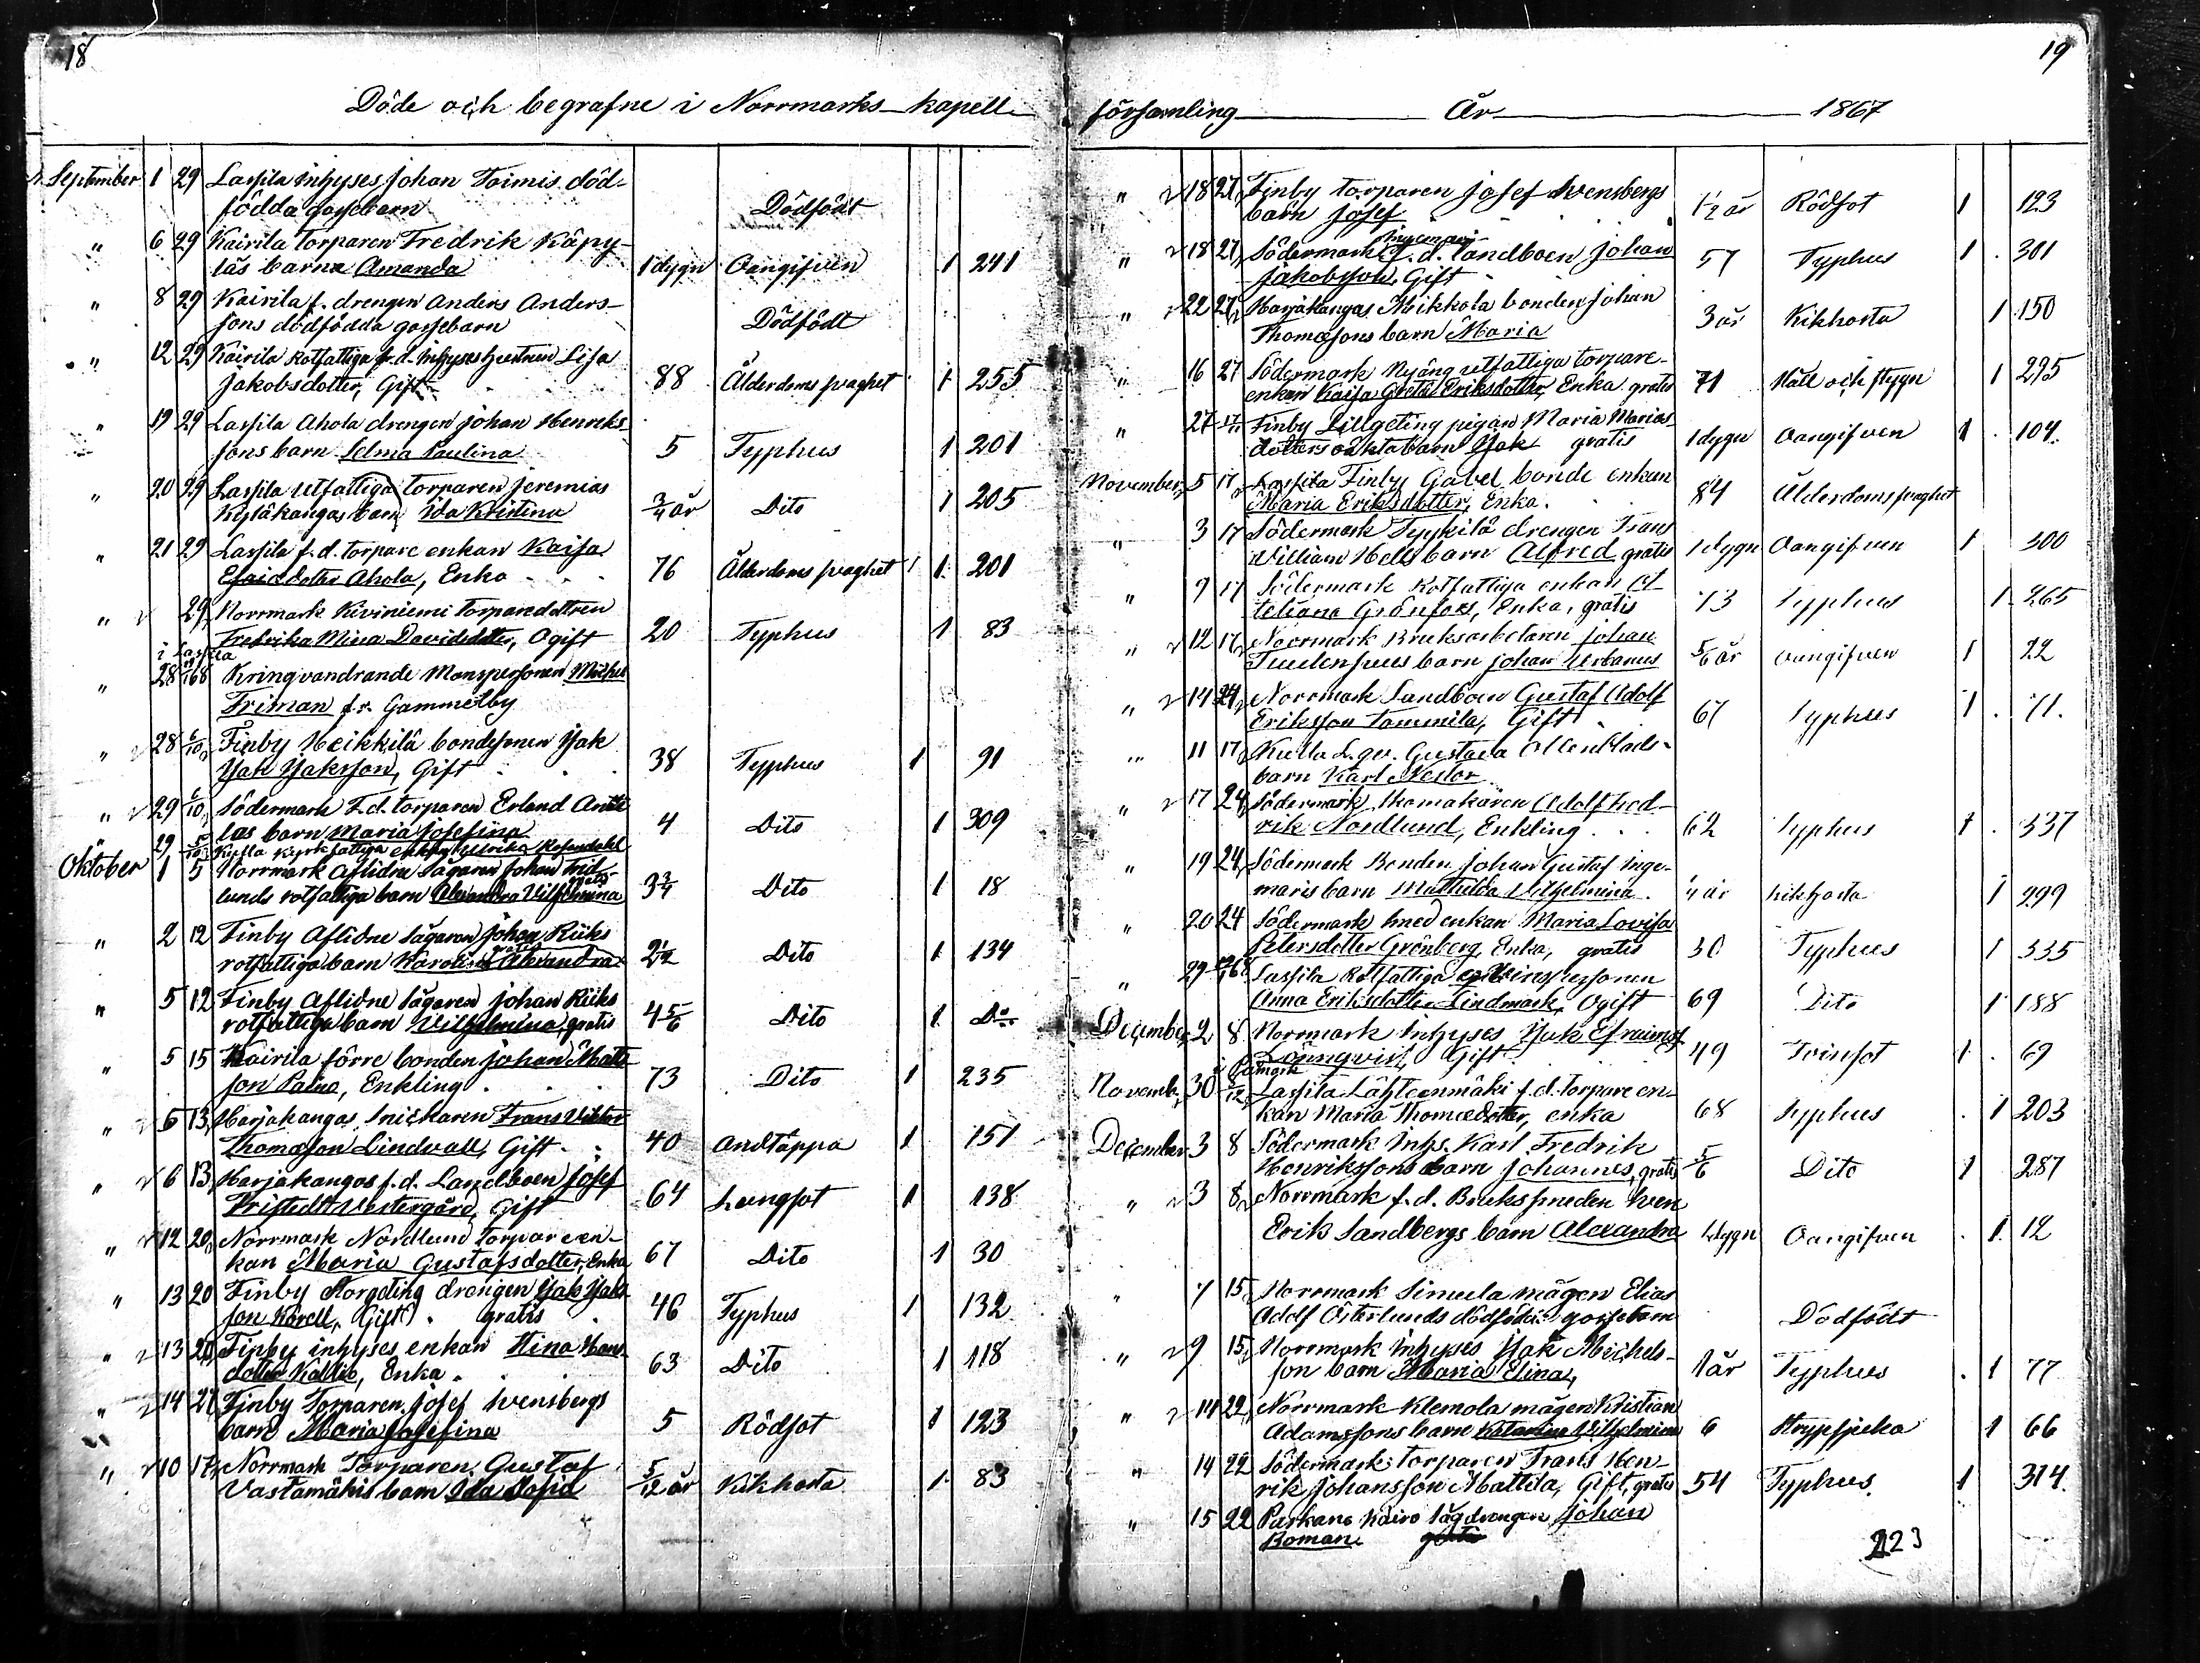 18
Döde och begrafne i Norrmarks kapell
September 1 29 Lassila inhyses Johan Toimis död-
födda gossebarn Dödfödt
" 6 29 Kairila torparen Fredrik Käpy-
läs barn Amanda 1 dygn Oangifven 1 241
" 8 29 Kairila f. drengen Anders Anders-
sons dödfödda gossebarn Dödfödt
" 12 29 Kairila Rotfattiga f.d. inhyses hustrun Lisa
Jakobsdotter, Gift 88 Ålderdoms svaghet 1 255
" 19 29 Lassila Ahola drengen Johan Henriks-
sons barn Selma Paulina 5 Typhus 1 201
" 20 29 Lassila utfattiga torparen Jeremias
Kyläkangas barn Ida Kristina 3/4 år Dito 1 205
" 21 29 Lassila f.d. torpare enkan Kaisa
Esaiædotter Ahola, Enka 76 Ålderdoms svaghet 1 201
" 29 Norrmark Kiviniemi torparedottren
Fredrika Mina Davidsdotter, Ogift 20 Typhus 1 83
i Lassila
" 28 Kringvandrande Manspersonen Michel
Friman fr. Gammelby
" 28 6/10 Finby Heikkilä bondesonen Isak
Isak Isaksson, Gift 38 Typhus 1 91
" 29 6/10 Södermark F.d. torparen Erland Antti
las barn Maria Josefina 4 Dito 1 309
29 Kyrkfattiga enkan Ulrika Rosendahl
Oktober 1 5 Norrmark Aflidne Sågaren Johan
lunds rotfattiga barn Alexandra Vilhelmina 3 3/4 Dito 1 18
" 2 12 Finby Aflidne Sågaren Johan Riiks
gratis
rotfattiga barn Karolina Alexandra 2 1/2 Dito 1 134
" 5 12 Finby Aflidne Sågaren Johan Riiks
rotfattiga barn Wilhelmina, gratis 4 5/6 Dito 1 Do
" 5 15 Kairila förre bonden Johan Matts
son Enkling 73 Dito 1 235
" 6 13 Harjakangas Snickaren Frans Viktor
Thomasson Lindvall, Gift 40 Andtäppa 1 151
" 6 13 Harjakangas f.d. Landboen Josef
Kristedt Vestergård, Gift 64 Lungsot 1 138
" 12 20 Norrmark Nordlund Torpareen-
kan Maria Gustafsdotter, Enka 67 Dito 1 30
" 13 20 Finby Storgeting drengen Isak Isaks
son Korell, Gift gratis 46 Typhus 1 132
" 13 20 Finby inhyses enkan Stina Hans
dotter Kallio, Enka 63 Dito 1 118
" 14 27 Finby Torparen Josef Svensbergs
barn Maria Josefina 5 Rödsot 1 123
" 10 17 Norrmark Torparen Gustaf
Vastamäkis barn Ida Sofia 5/12 år Kikhosta 1 83
19
församling År 1867
" 18 27 Finby torparen Josef Svensbergs
barn Josef 1 1/2 år Rödsot 1 123
Ingemari
" 18 27 Södermark f.d. landboen Johan
Jakobsson, Gift 57 Typhus 1 301
" 22 27 Harjakangas Heikkola bonden Johan
Thomassons barn Maria 3 år Kikhosta 1 150
" 16 27 Södermark Nyäng utfattiga torpare-
enkan Kaisa Greta Eriksdotter, Enka gratis 71 Håll och stygn 1 295
" 27 17/11 Finby Lillgeting pigan Maria Marias-
dotters oäkta barn Isak gratis 1 dygn Oangifven 1 104
November 5 17 Lassila Finby Gabel bonde enkan
Maria Eriksdotter, Enka 84 Ålderdoms svaghet
" 3 17 Södermark Tyykilä drengen Frans
William Hells barn Alfred gratis 1 dygn Oangifven 1 300
" 9 17 Södermark Rotfattiga enkan
Grönfors, Enka, gratis 73 Typhus 1 265
" 12 17 Norrmark Bruksarbetaren Johan
Tuulensuus barn Johan Urbanus 5/6 år Oangifven 1 22
" 14 24 Norrmark Landboen Gustaf Adolf
Eriksson Tommila, Gift 67 Typhus 1 71
" 11 17 Gustava
barn Karl Nestor
" 17 24 Södermark Skomakaren Adolf Fred-
rik Nordlund, Enkling 62 Typhus 1 337
" 19 24 Södermark Bonden Johan Gustaf Inge-
maris barn Mathilda Vilhelmina år Kikhosta 1 299
" 20 24 Södermark Smed enkan Maria Lovisa
Petersdotter Grönberg, Enka, gratis 30 Typhus 1 335
" 29 Lassila Rotfattiga qvinnspersonen
Anna Eriksdotter Lindmark, Ogift 69 Dito 1 188
December 2 8 Norrmark Inhyses Isak Efraims
Lönnqvist, Gift 49 Tvinsot 1 69
Novemb. 30 8/12 Lassila Lähteenmäki f.d. torpare en-
kan Maria Thomædotter, enka 68 Typhus 1 203
December 3 8 Södermark Inhs. Karl Fredrik
Henrikssons barn Johannes, gratis 5/6 Dito 1 287
" 3 8 Norrmark f.d. Brukssmeden Sven
Erik Sandbergs barn Alexandra dygn Oangifven 1 12
" 7 15 Norrmark Simula mågen Elias
Adolf Österlunds dödfödda gossebarn Dödfödt
" 9 15 Norrmark Inhyses Isak Michels-
son barn Maria Elina 1 år Typhus 1 77
" 11 22 Norrmark Klemola mågen Kristian
Adamssons barn Katarina Wilhelmina 6 Strypsjuka 1 66
" 14 22 Södermark torparen Frans Hen-
rik Johansson Mattila, Gift, gratis 54 Typhus 1 314
" 15 22 Parkano Kairo Sågdrengen Johan
Roman
223